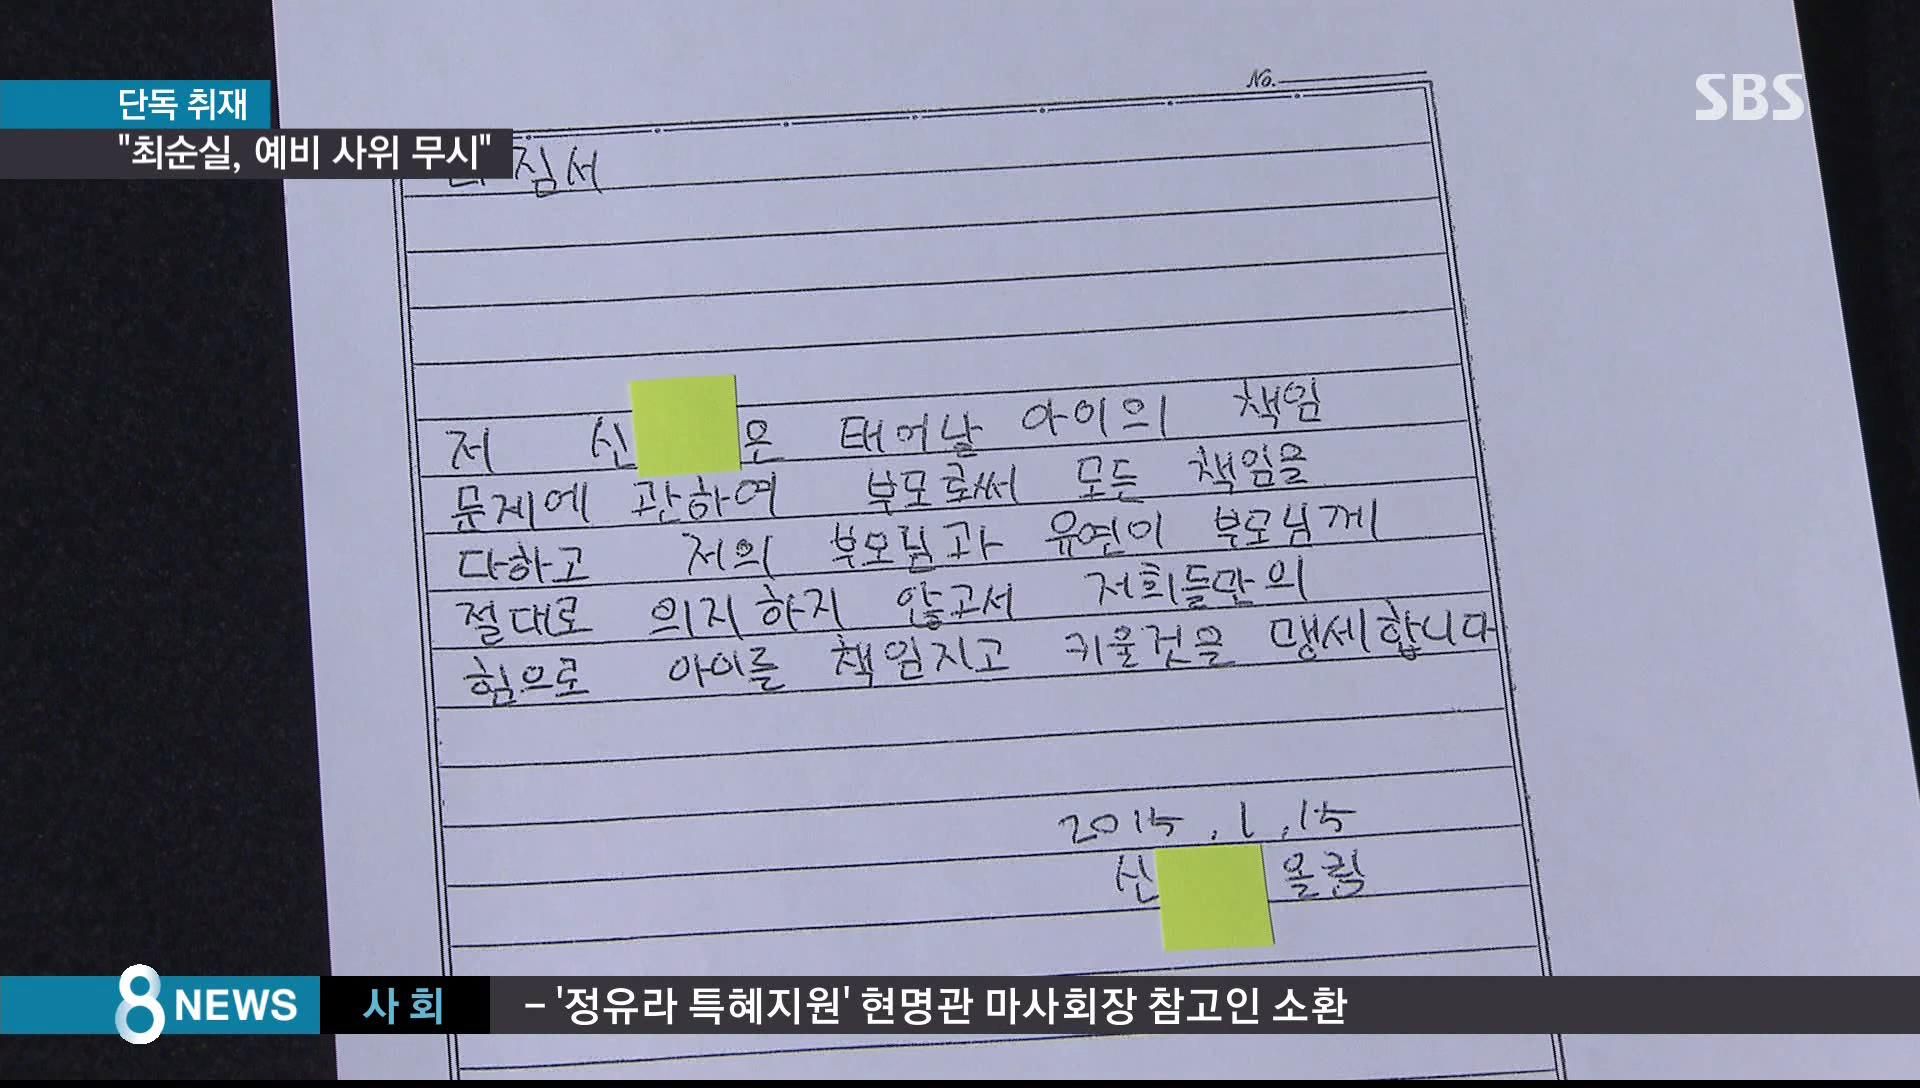 No.
SBS
단독 취재
"최순실, 예비 사위 무시"
짐서
저 신 은 태어날 아이의 책임
문제에 관하여 부모로써 모든 책임을
다하고 저의 부모님과 유연이 부모님께
절대로 의지하지 않고서 저희들만의
힘으로 아이를 책임지고 키울것을 맹세합니다
2015. 1. 15
신 올림
8 NEWS 사회 - '정유라 특혜지원' 현명관 마사회장 참고인 소환